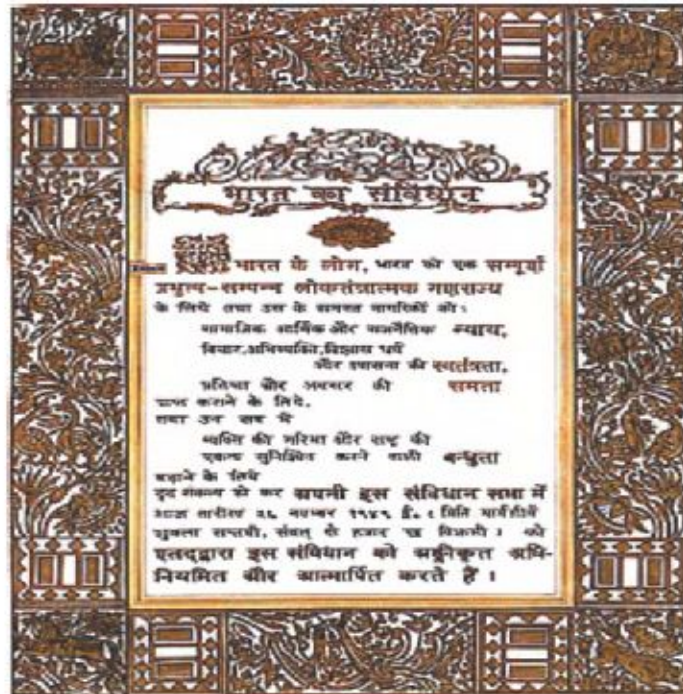 भारत का संविधान
भारत के लोग, भारत को एक सम्पूर्ण
प्रभुत्व-सम्पन्न लोकतंत्रात्मक गणराज्य
के लिये तथा उस के समस्त नागरिकों को:
सामाजिक आर्थिक और राजनैतिक न्याय,
विचार, अभिव्यक्ति, विश्वास धर्म
और उपासना की स्वतंत्रता,
प्रतिष्ठा और अवसर की समता
प्राप्त कराने के लिये,
तथा उन सब में
व्यक्ति की गरिमा और राष्ट्र की
एकता सुनिश्चित करने वाली बन्धुता
बढ़ाने के लिये
दृढ़ संकल्प हो कर अपनी इस संविधान सभा में
आज तारीख २६ नवम्बर १९४९ ई. (मिति मार्गशीर्ष
शुक्ला सप्तमी, संवत् दो हजार छह विक्रमी) को
एतद्द्वारा इस संविधान को अङ्गीकृत अधि-
नियमित और आत्मार्पित करते हैं।